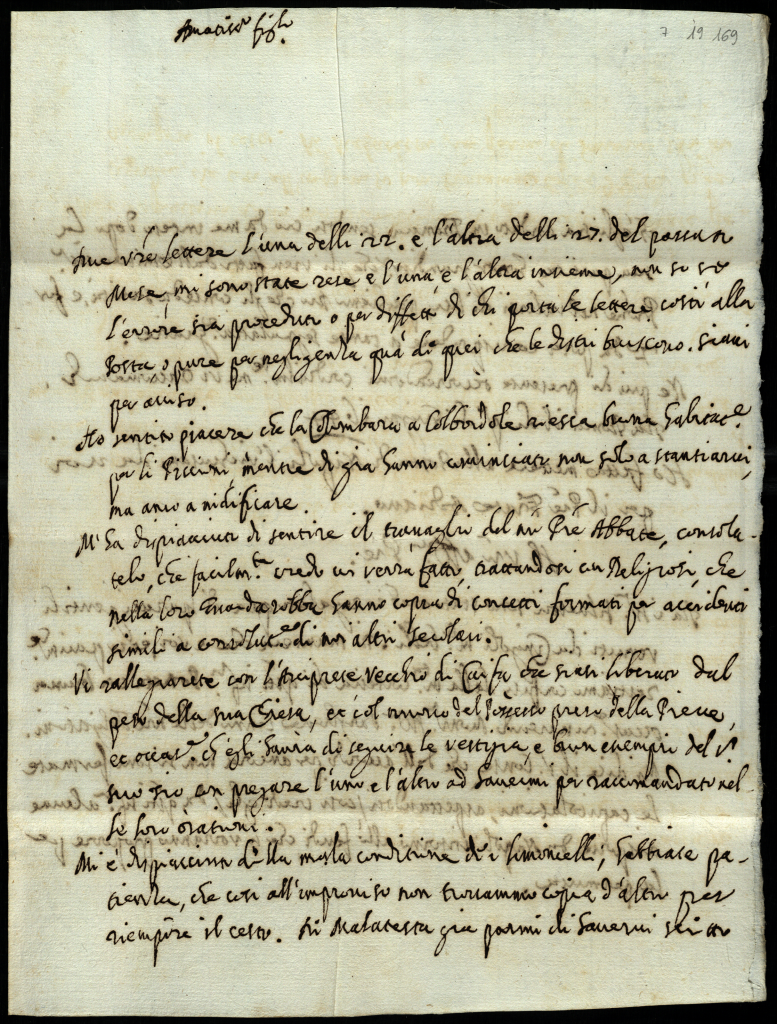 Amatiss.o figl.o
7 19 169
Due vre lettere l'una delli 22. e l'altra delli 27. del passato
Mese, mi sono state rese e l'una e l'altra insieme, non so se
l'errore sia proceduto o per diffetto di chi porta le lettere costì alla
Posta, o pure per negligenza quà di quei che le distribuiscono. Siavi
per aviso.
Ho sentito piacere che la Colombara a Colbordole riesca buona habitat.e
per li Piccioni, mentre di già hanno cominciato non solo a stantiarvi,
ma anco a nidificare.
M'ha dispiaciuto di sentire il travaglio del Pre Abbate, consola-
telo, che facilm.te credo vi verrà fatto, trattandosi con Religiosi, che
nella loro Guardarobba hanno copia di concetti formati per accidenti
simili a consolat.e di noi altri secolari.
Vi rallegrarete con l'Arciprete vecchio di che siasi liberato dal
peso della sua Chiesa, et col nuovo del Possesso preso della Pieve,
et occas.e ch'egli havrà di seguire le vestigia, e buon esempio del
suo zio con pregare l'uno e l'altro ad havermi per raccomandato nel-
le loro orationi.
Mi è dispiaciuto della mala conditione de i Limoncelli, habbiate pa-
tienza, che così all'improviso non trovammo copia d'altro per
riempire il cesto. Ai Malatesta già parmi di havervi scritto